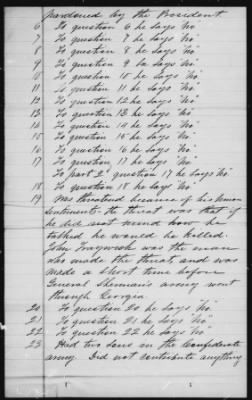 pardoned by the President
6 To question 6 he says "no"
7 To question 7 he says "no"
8 To question 8 he says "no"
9 To question 9 he says "no"
10 To question 10 he says "no"
11 To question 11 he says "no"
12 To question 12 he says "no"
13 To question 13 he says "no"
14 To question 14 he says "no"
15 To question 15 he says "no"
16 To question 16 he says "no"
17 To question 17 he says "no"
To part 2d question 17 he says "no"
18 To question 18 he says "no"
19 Was threatened because of his Union
sentiments - the threat was that if
he did not mind how he
talked he would be killed.
John was the man
who made the threat, and was
made a short time before
General Sherman's army went
through Georgia.
20 To question 20 he says "no"
21 To question 21 he says "no"
22 To question 22 he says "no"
23 Had two sons in the Confederate
army. Did not contribute anything